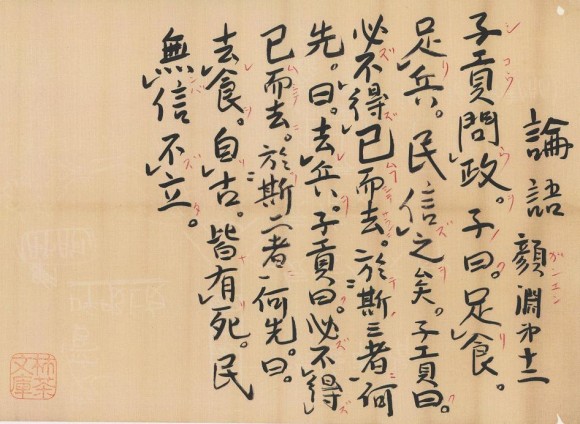 論語 顔淵第十二
子貢問政。子曰。足食。
足兵。民信之矣。子貢曰。
必不得已而去。於斯三者何
先。曰。去兵。子貢曰。必不得
已而去。於斯二者何先。曰。
去食。自古。皆有死。民
無信不立。
文庫